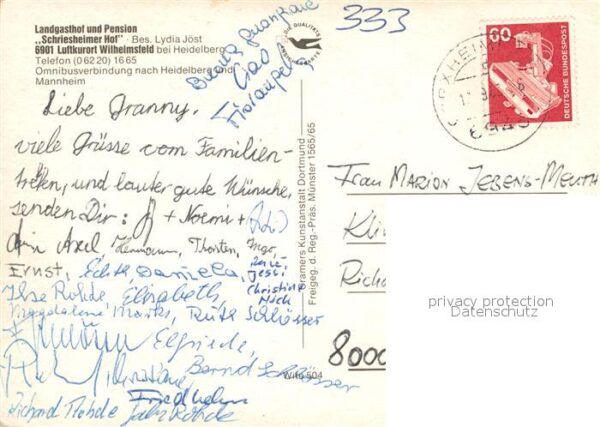 Landgasthof und Pension
„Schriesheimer Hof" · Bes. Lydia Jöst
6901 Luftkurort Wilhelmsfeld bei Heidelberg
Telefon (0 62 20) 16 65
Omnibusverbindung nach Heidelberg und
Mannheim
Ciao
333
60
DEUTSCHE BUNDESPOST
Liebe Granny,
viele Grüsse vom Familien-
treffen, und lauter gute Wünsche,
senden Dir: + Noemi +
Axel Hermann, Thorsten, Ingo,
Ernst, Edith Daniela, Jessi
Christine
Ilse Rohde, Elisabeth,
Magdalene Marks, Ruth Schlösser
Elfriede,
Bernd Schlösser
Friedhelm
Richard Rohde Rohde
Kramers Kunstanstalt Dortmund
Freigeg. d. Reg.-Präs. Münster 1565/65
Wilfo 504
Frau Marion Jebens-Meuth
Kli
Richa
8000
privacy protection
Datenschutz